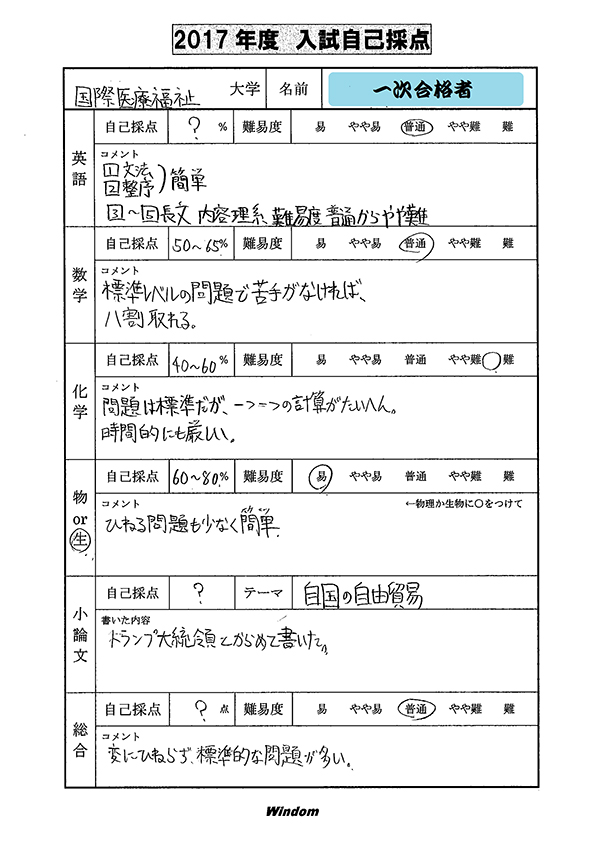 2017年度 入試自己採点
国際医療福祉 大学 名前 一次合格者
英語 自己採点 ? % 難易度 易 やや易 普通 やや難 難
コメント
1文法
2整序 ) 簡単
3~5長文 内容理系、難易度普通からやや難
数学 自己採点 50~65% 難易度 易 やや易 普通 やや難 難
コメント
標準レベルの問題で苦手がなければ、
八割取れる。
化学 自己採点 40~60% 難易度 易 やや易 普通 やや難 難
コメント
問題は標準だが、一つ一つの計算がたいへん。
時間的にも厳しい。
物or生 自己採点 60~80% 難易度 易 やや易 普通 やや難 難
コメント ←物理か生物に○をつけて
ひねる問題も少なく簡単
小論文 自己採点 ? テーマ 自国の自由貿易
書いた内容
トランプ大統領とからめて書いた。
総合 自己採点 ? 点 難易度 易 やや易 普通 やや難 難
コメント
変にひねらず、標準的な問題が多い。
Windom